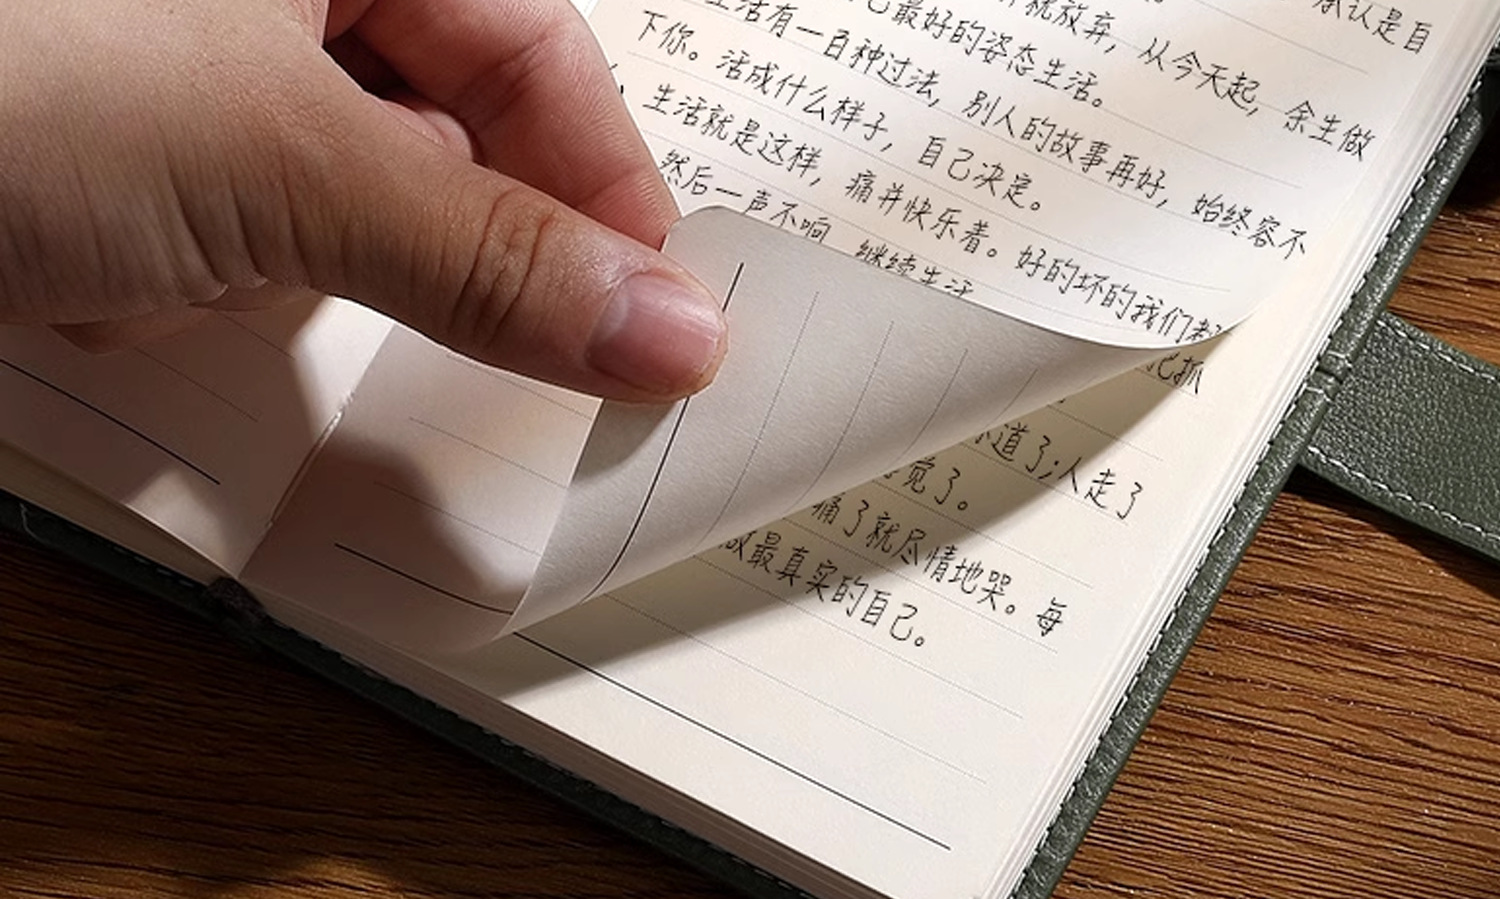 承认是自
就放弃，从今天起，余生做
己最好的姿态生活。
生活有一百种过法，别人的故事再好，始终容不
下你。活成什么样子，自己决定。
生活就是这样，痛并快乐着。好的坏的我们都
然后一声不响，继续生活
抓
道了;人走了
觉了。
痛了就尽情地哭。每
做最真实的自己。